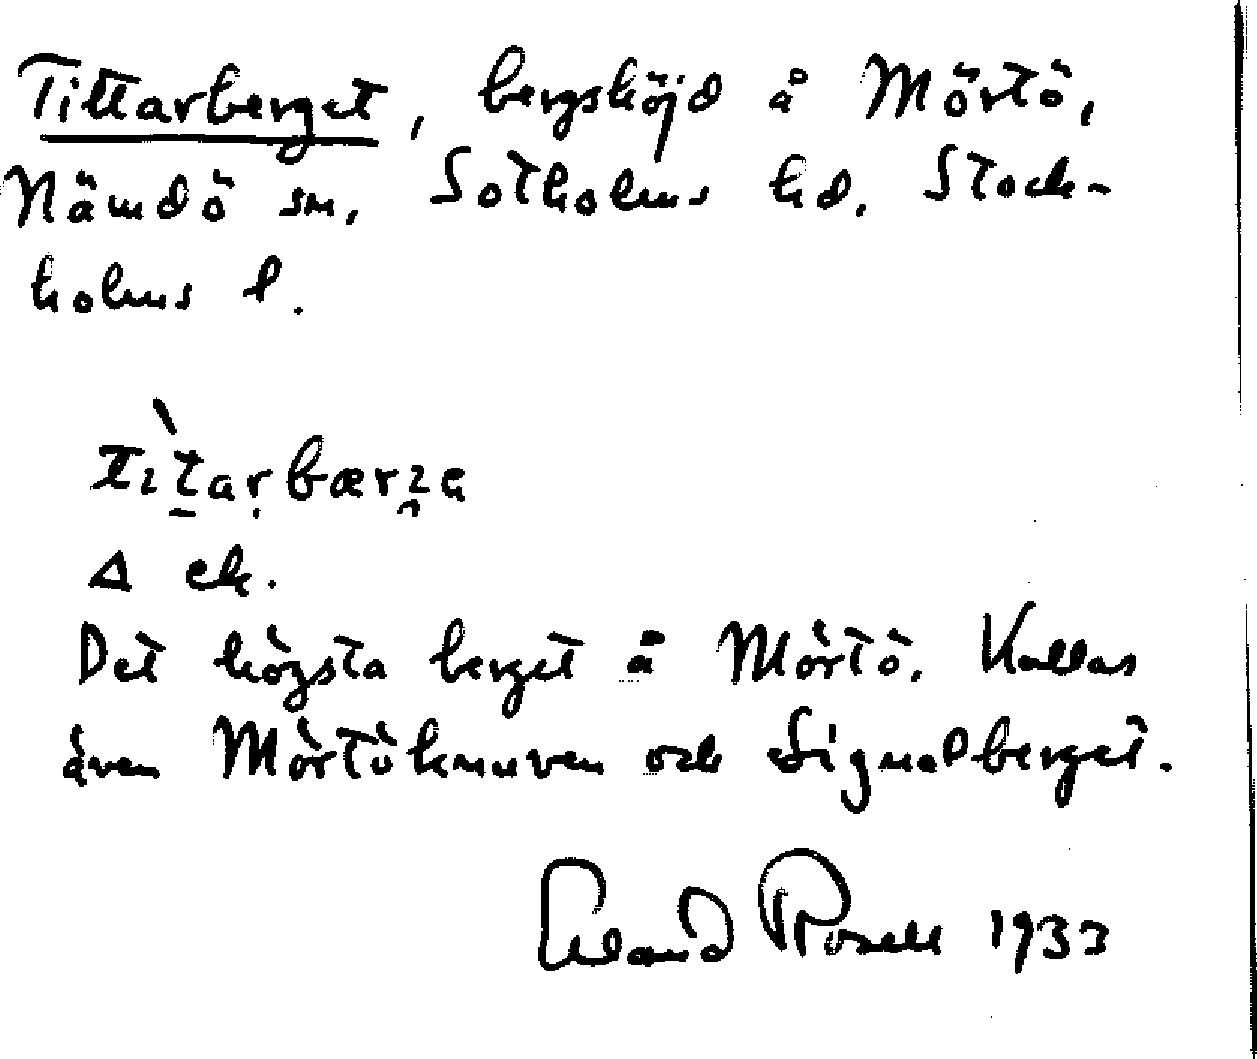 Tittarberget, bergshöjd å Mörtö,
Nämdö sn, Sotholms hd. Stock-
holms l.
Δ ek.
Det högsta berget å Mörtö. Kallas
även Mörtöknuven och Signalberget.
Erland Rosell 1933